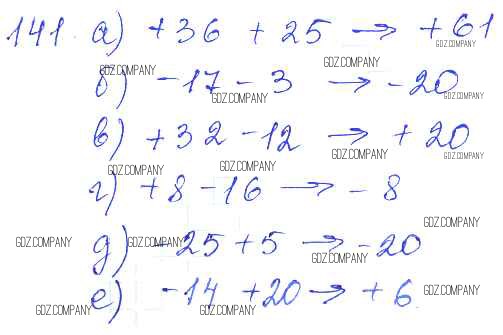 141. а) +36 + 25 → +61
GDZ.COMPANY
б) -17 - 3 → -20
GDZ.COMPANY GDZ.COMPANY GDZ.COMPANY
в) +32 -12 → +20
GDZ.COMPANY GDZ.COMPANY GDZ.COMPANY GDZ.COMPANY
г) +8 -16 → -8
GDZ.COMPANY
д) -25 +5 → -20
GDZ.COMPANY GDZ.COMPANY GDZ.COMPANY
е) -14 +20 → +6
GDZ.COMPANY GDZ.COMPANY GDZ.COMPANY